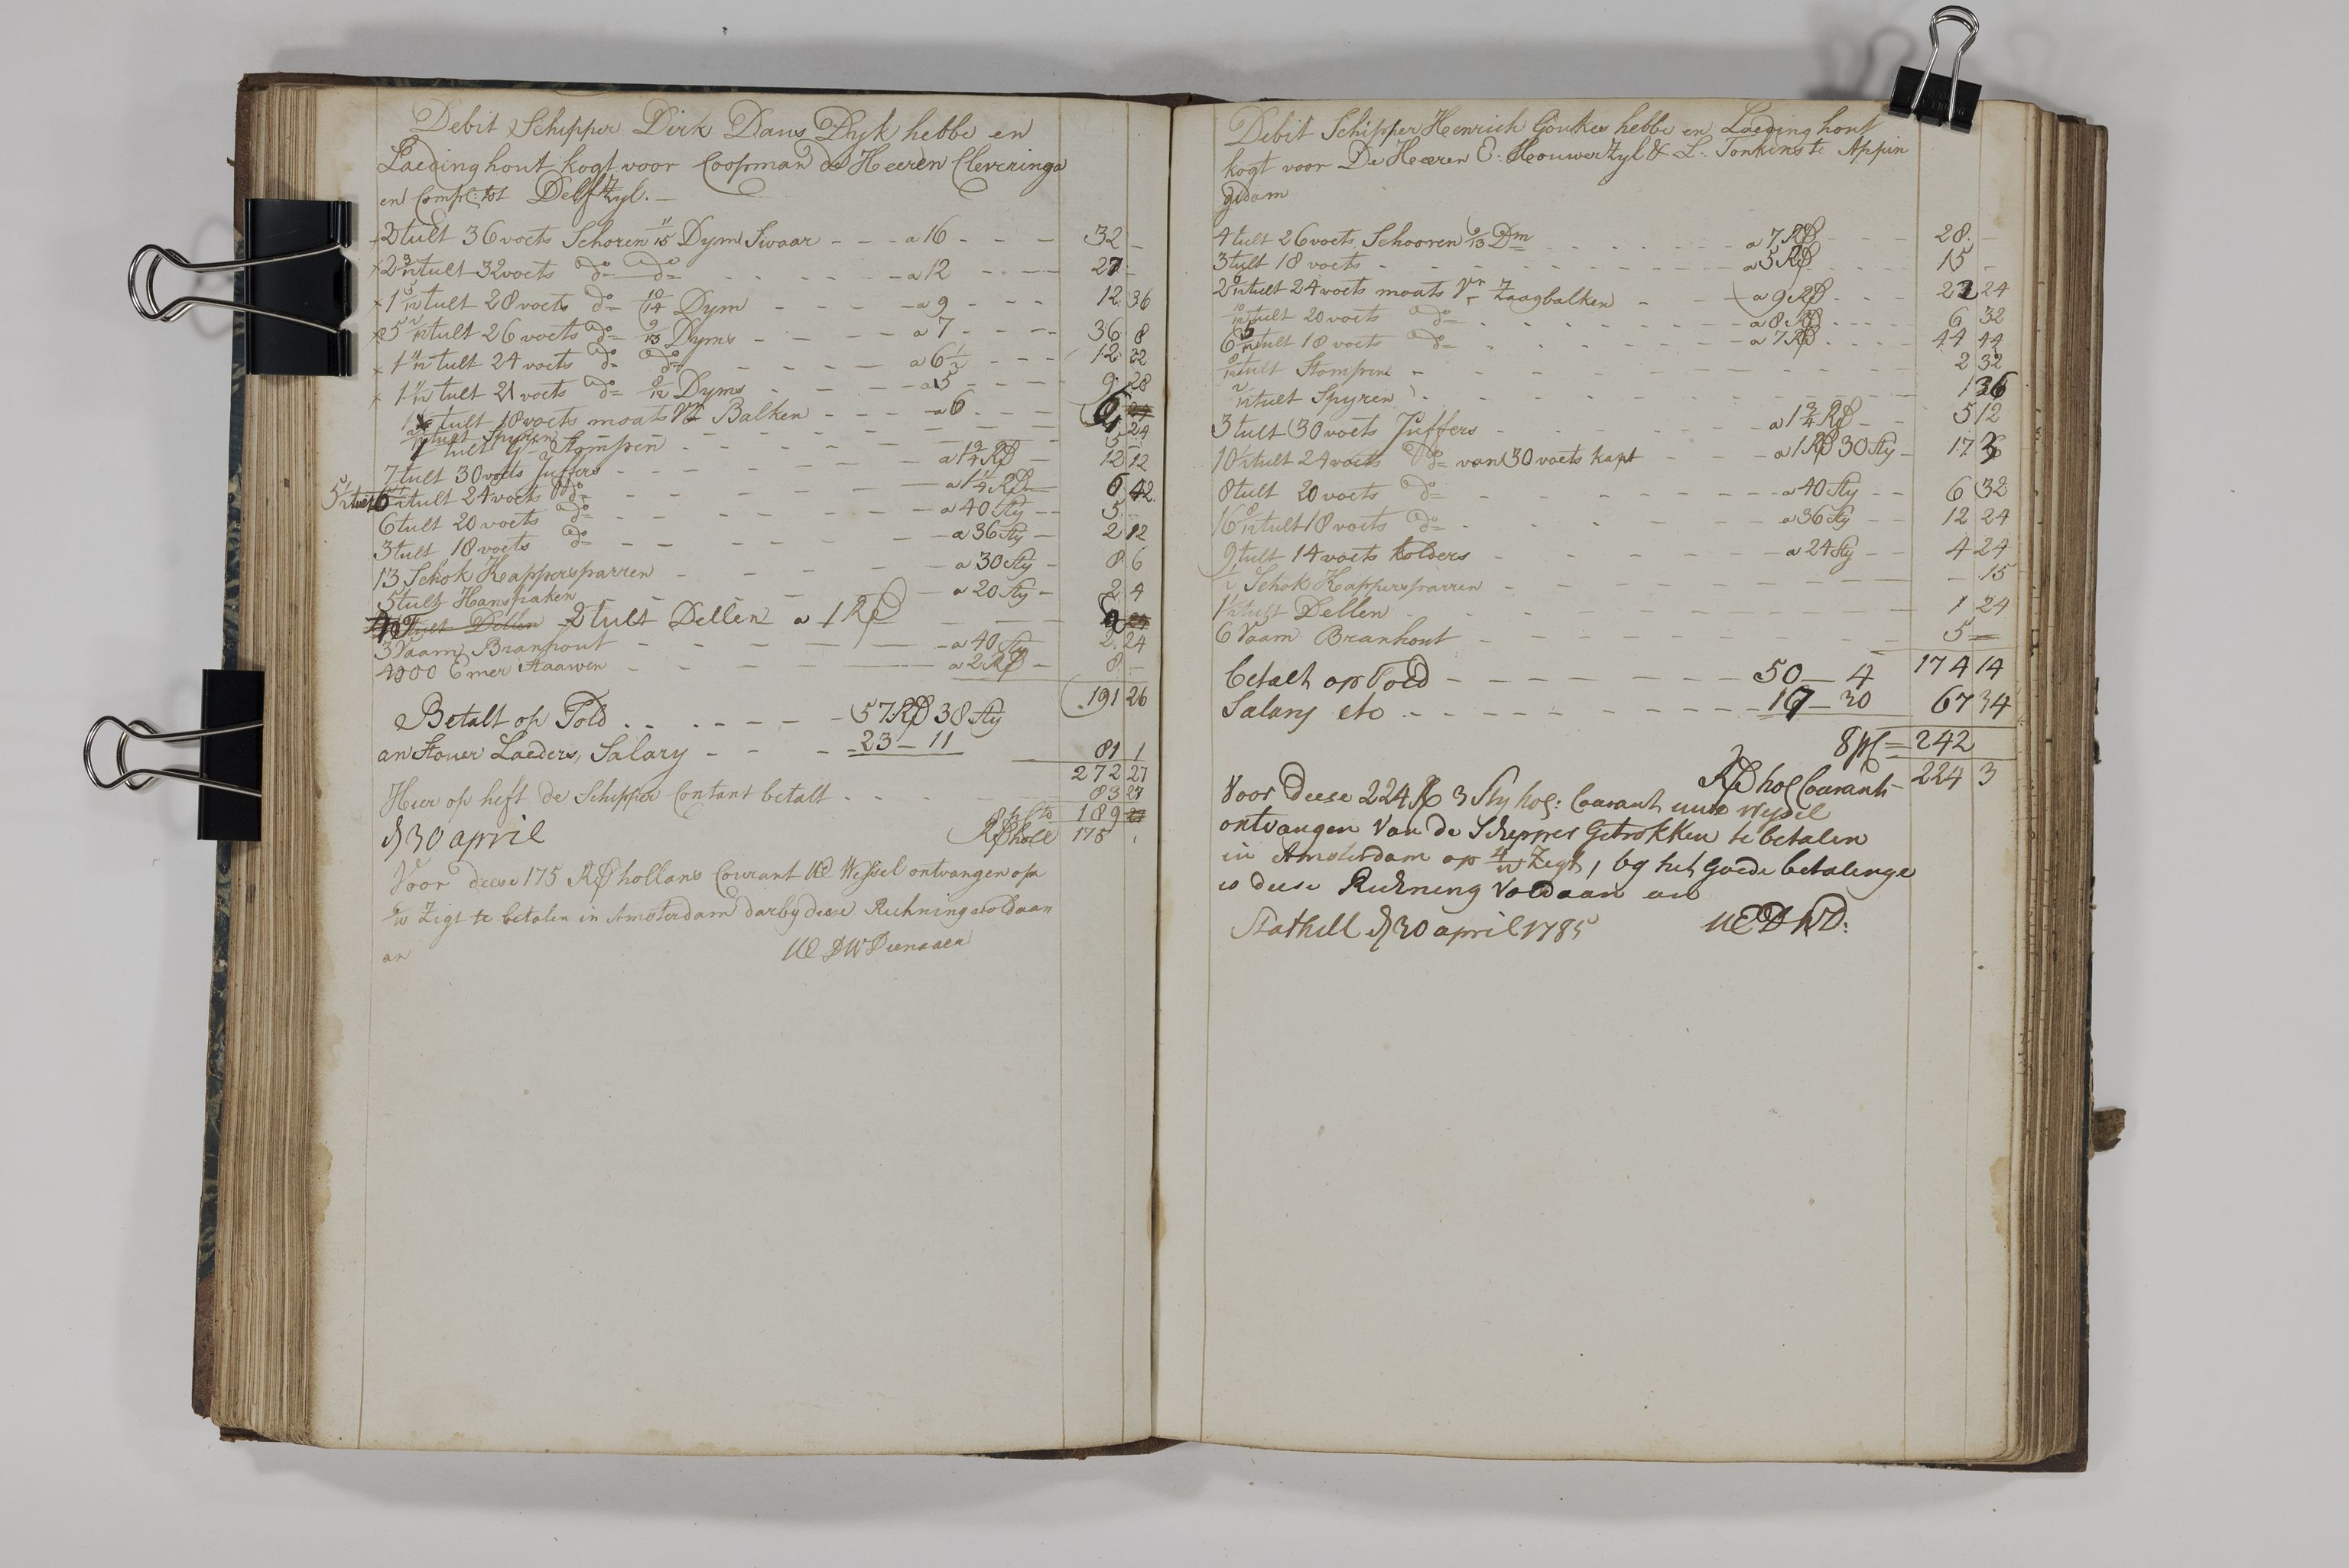 Debit Schipper Dirk Dans Dyk hebbe en
Laeding hout kogt voor Coopman de Heeren Cleveringa
en Comp: tot Delfzyl. —
2 tult 36 voets Schoren 11/15 Dym Swaar - - - a 16 - - - 32 -
2 3/12 tult 32 voets do do - - - a 12 - - - 27 -
1 5/12 tult 28 voets do 10/14 Dym - - - a 9 - - - 12 36
5 2/12 tult 26 voets do 9/13 Dyms - - - a 7 - - - 36 8
tult 24 voets do do - - - a 6 1/2 - - - 12 22
tult 21 voets do 8/12 Dyms - - - a 5 - - - 9 28
1 tult 18 voets moats Balken - - - a 6 - - - 6
tult Spyren - - - 24
tult Stompen - - - 5
7 tult 30 voets Juffers - - - a 1 3/4 RD - 12 12
5 1/2 tult 24 voets do - - - a 1 1/4 RD - 6 42
6 tult 20 voets do - - - a 40 Sty - - 5 -
3 tult 18 voets do - - - a 36 Sty - 2 12
13 Schok Kappersparren - - - a 30 Sty - 8 6
5 tult Hanspaken - - - a 20 Sty - 2 4
tult Dellen 2 tult Dellen a 1 RD - - - 2
3 Vaam Branhout - - - a 40 Sty 2 24
4000 Emer Staawen - - - a 2 RD - 8 -
191 26
Betalt op Told - - - 57 RD 38 Sty
an Stouer Laeders, Salary - - - 23 - 11 81 1
272 27
Hier op heft de Schipper Contant betalt - - - 83 27
189
d 30 april RD holl 175
Voor deese 175 RD hollans Courant Wessel ontvangen op
Zigt te betalen in Amsterdam darby deese Rechning voldaan
an DW Dienaaer
Debit Schipper Henrich Gönkes hebbe en Laeding hout
kogt voor De Heeren E: Houwerzyl & L: Tonkens te Appin
gdam
4 tult 26 voets Schooren 9/13 Dm - - - a 7 RD - - - 28 -
3 tult 18 voets - - - a 5 RD - - - 15 -
2 6/12 tult 24 voets moats Zaagbalken - - - a 9 RD - - - 22 24
10/12 tult 20 voets do - - - a 8 RD - - - 6 32
6 5/12 tult 18 voets do - - - a 7 RD - - - 44 44
8/12 tult Stompen - - - 2 32
tult Spyren - - - 1 36
3 tult 30 voets Juffers - - - a 1 3/4 RD - 5 12
10 1/2 tult 24 voets do van 30 voets kapt - - - a 1 RD 30 Sty - 17
8 tult 20 voets do - - - a 40 Sty - - 6 32
16 8/12 tult 18 voets do - - - a 36 Sty - - 12 24
9 tult 14 voets kolders - - - a 24 Sty - - 4 24
1/2 Schok Kappersparren - - - - 15
1 1/2 tult Dellen - - - 1 24
6 Vaam Branhout - - - 5 -
174 14
betalt op Toed - - - 50 - 4
Salary etc - - - 17 - 30 67 34
242
RD hol Courant - 224 3
Voor deese 224 RD 3 Sty hol: Courant Wessel
ontvangen van de Schepper Getrokken te betalen
in Amsterdam op Zigt, by het goede betalinge
is deese Rechning voldaan an
Stathell d 30 april 1785 DWD: